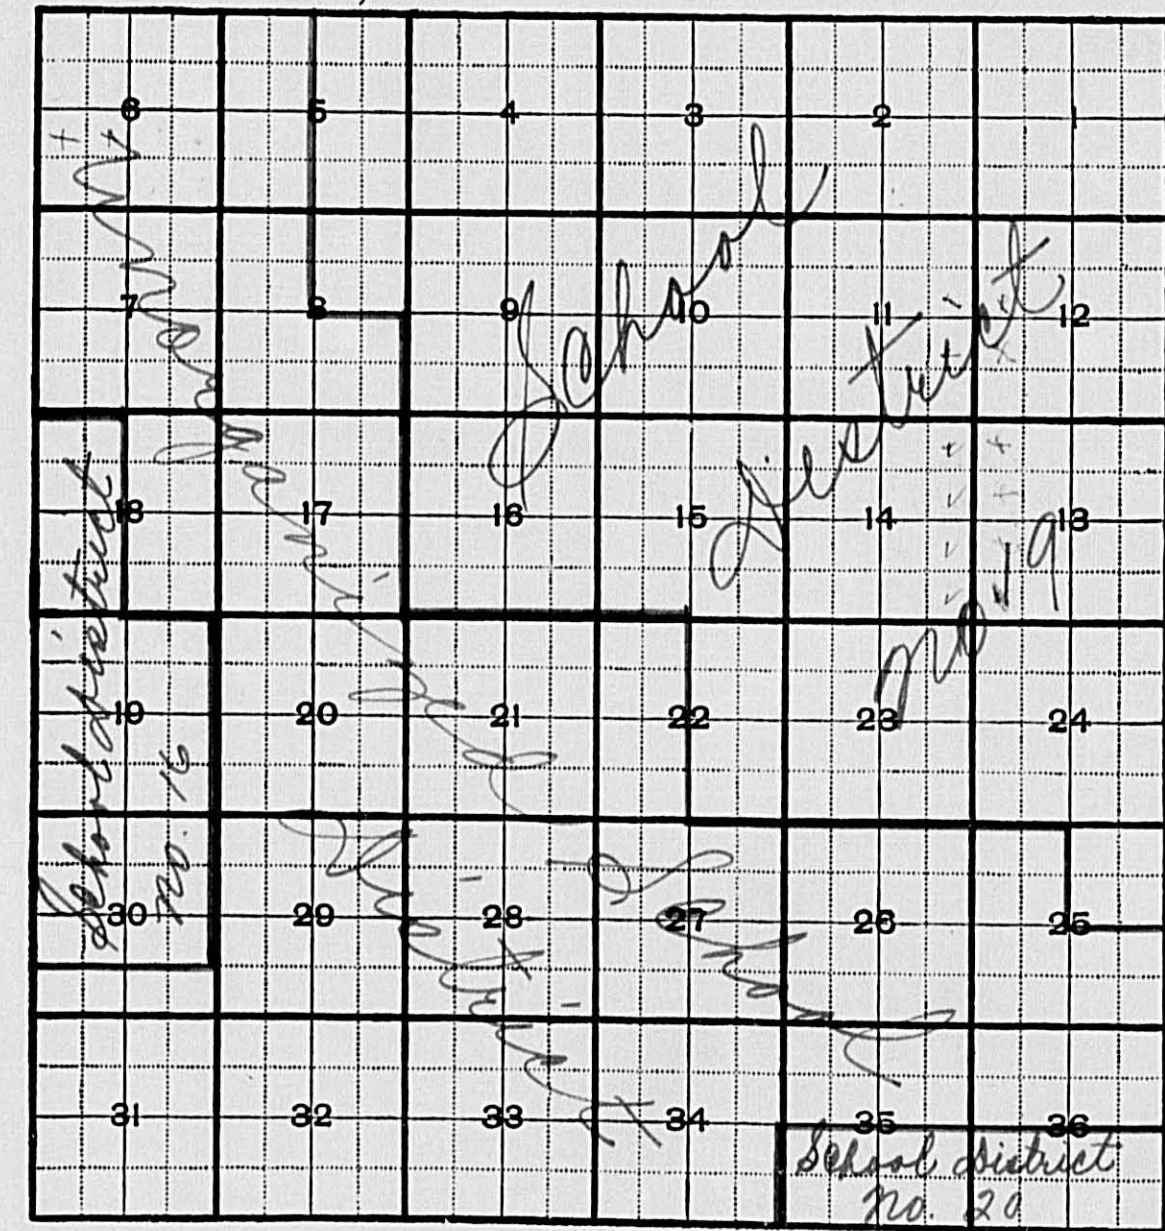 6 5 4 3 2 1
7 8 9 10 11 12
18 17 16 15 14 13
19 20 21 22 23 24
30 29 28 27 26 25
31 32 33 34 35 36
School
District
No. 19
School district
no. 16
School district
No. 20
School
District